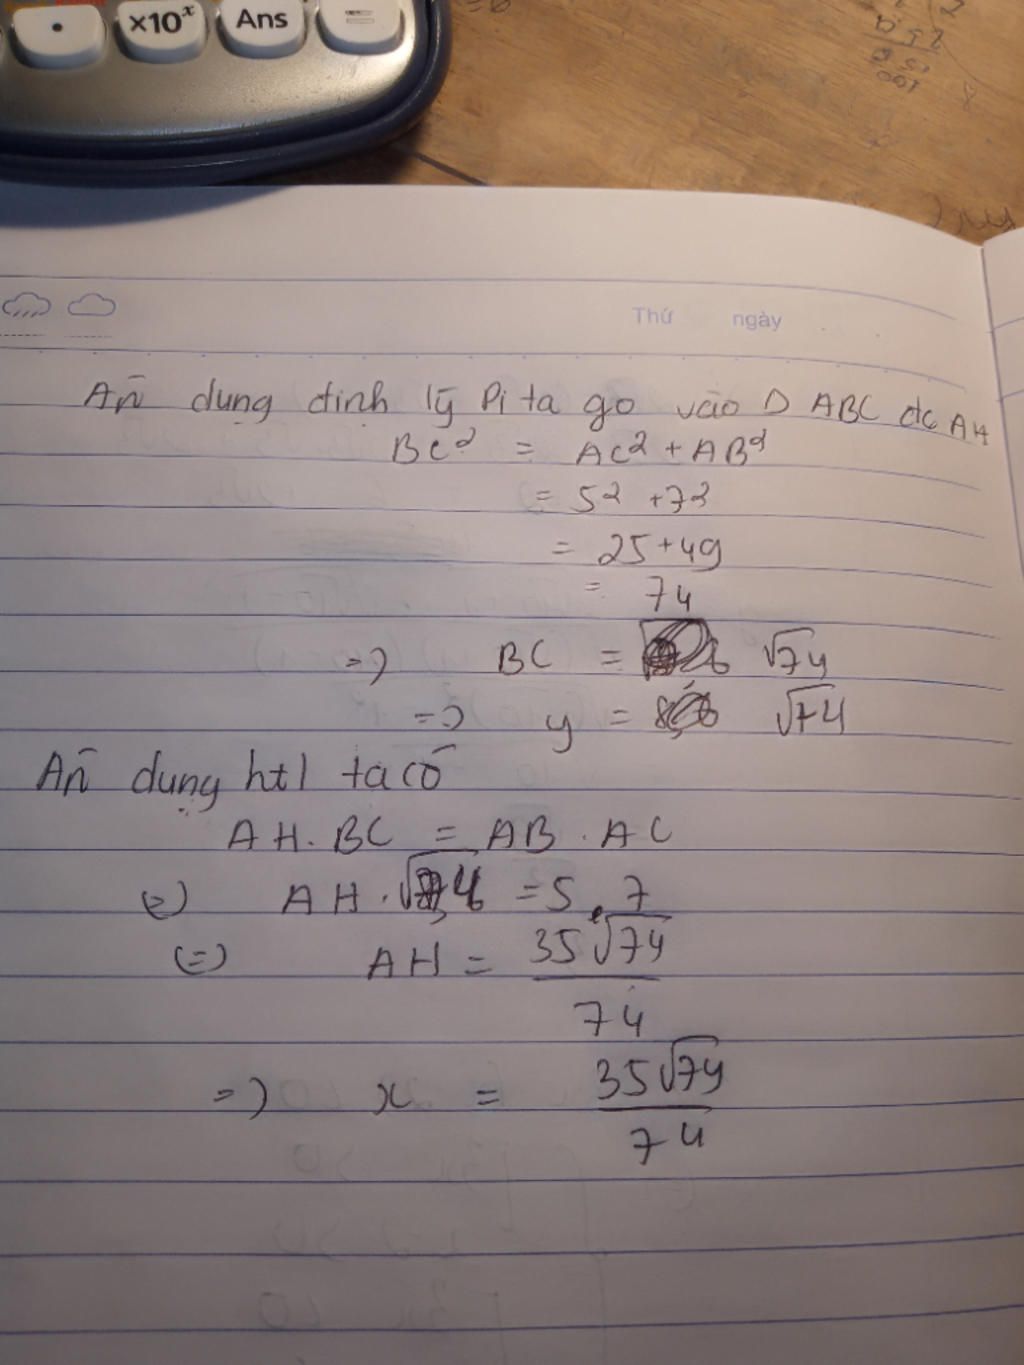 ×10ˣ Ans =
Thứ ngày
Áñ dụng định lý Pi ta go vào Δ ABC đc AH
BC² = AC² + AB²
= 5² + 7²
= 25 + 49
= 74
=> BC = √74
=> y = √74
Áñ dụng htl ta có
AH . BC = AB . AC
(=) AH . √74 = 5 . 7
(=) AH = 35√74 / 74
=> x = 35√74 / 74